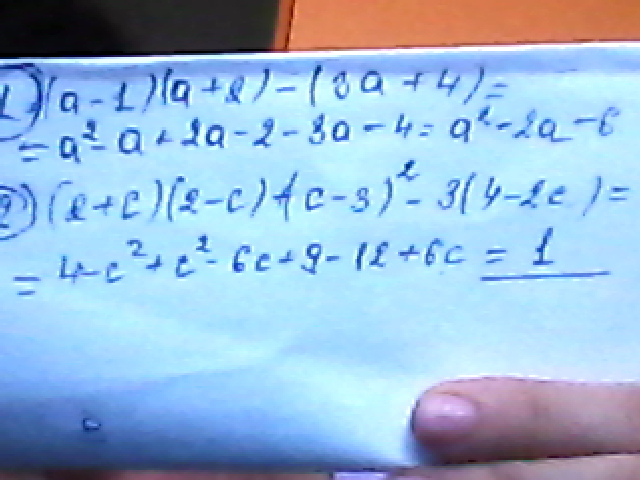 1) (a-1)(a+2)-(3a+4)=
=a²-a+2a-2-3a-4=a²-2a-6
2) (2+c)(2-c)+(c-3)²-3(4-2c)=
=4-c²+c²-6c+9-12+6c=1